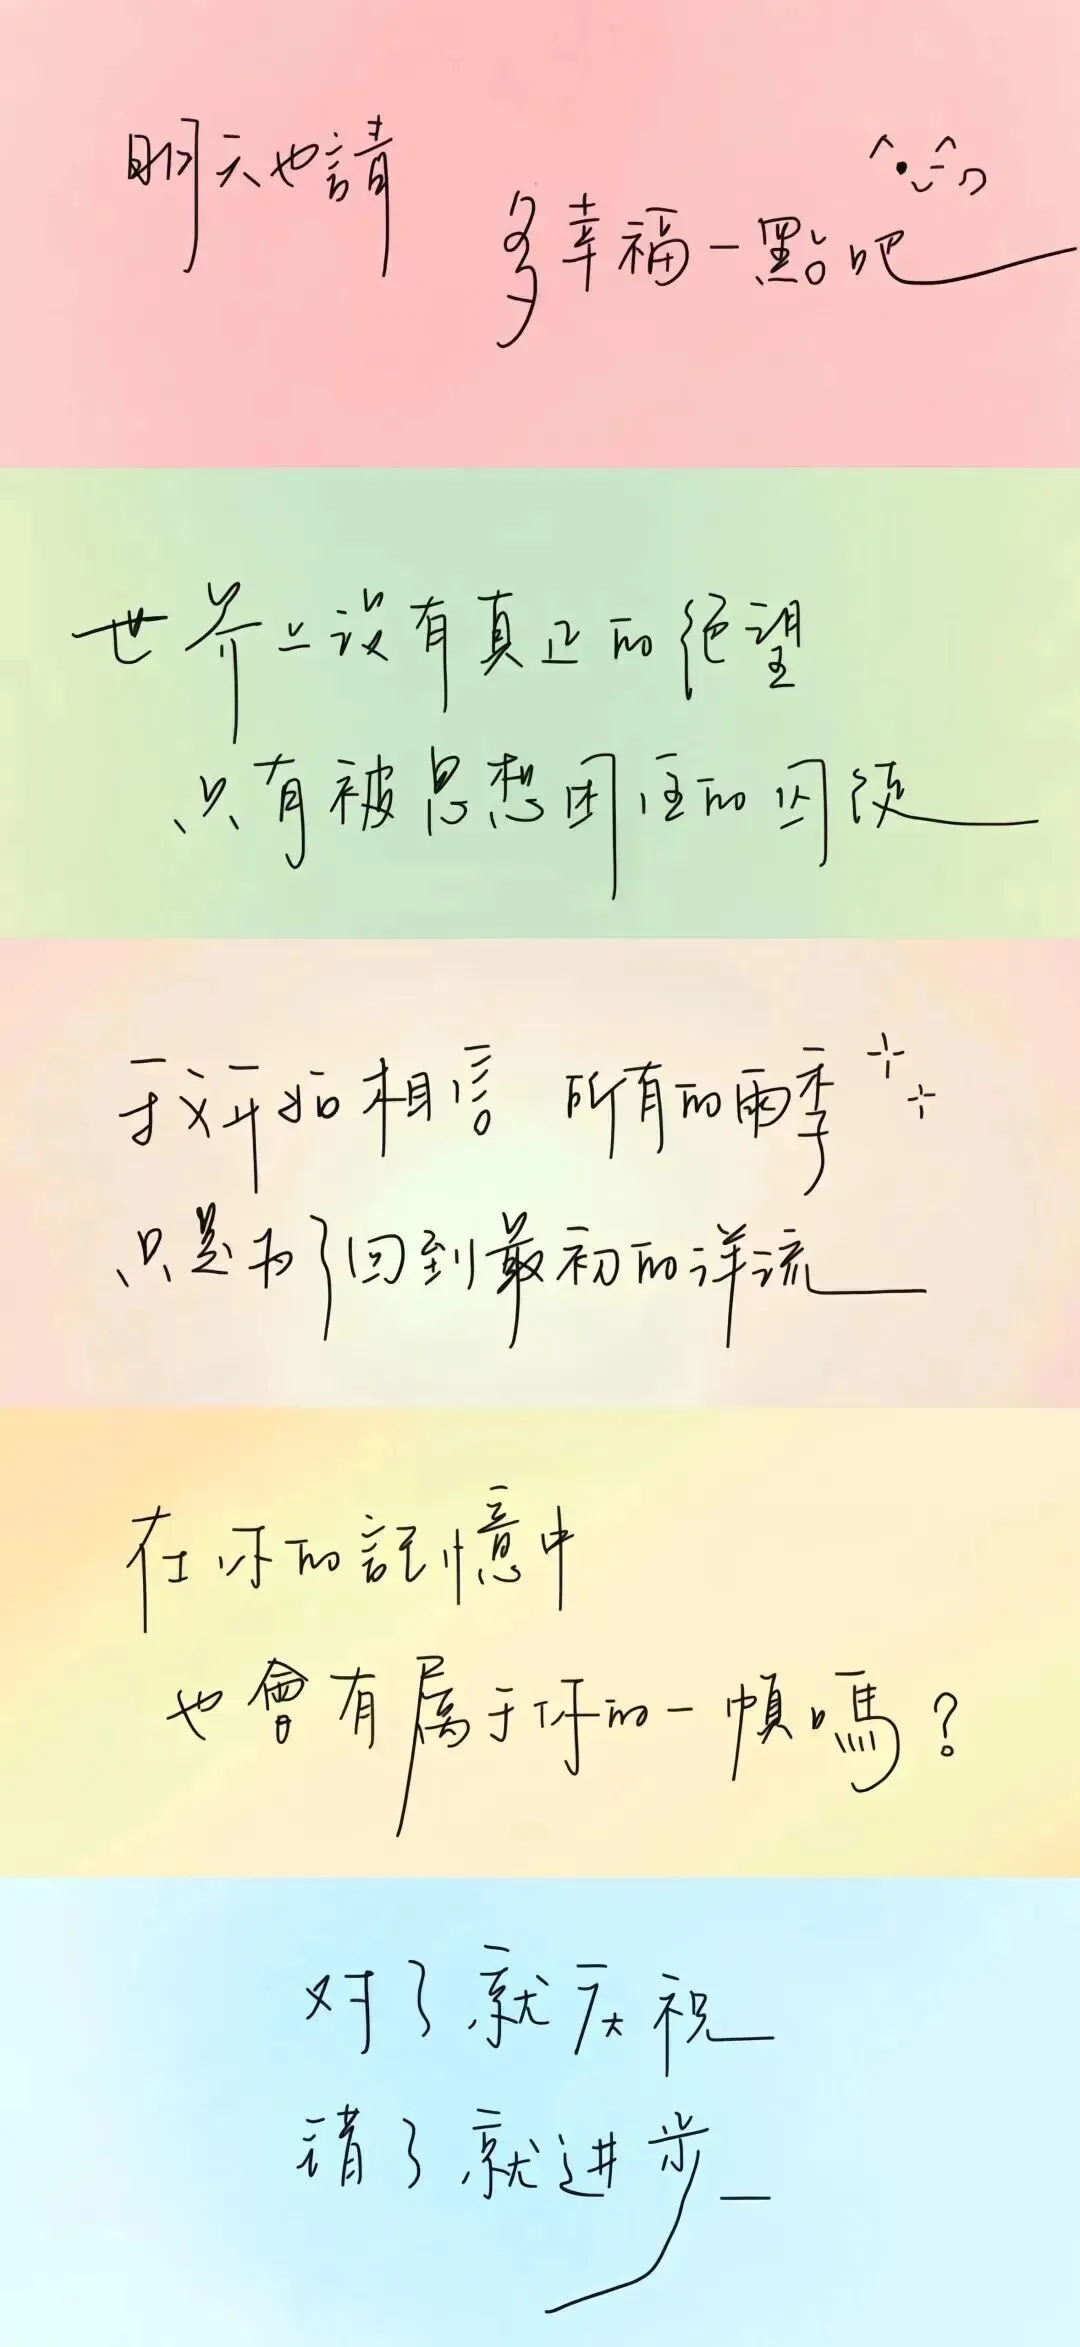 明天也請
多幸福一點吧
世界上没有真正的絕望
只有被思想困住的囚徒
我开始相信 所有的雨季
只是为了回到最初的洋流
在你的記憶中
也會有属于你的一幀嗎?
对了就庆祝
请了就进步